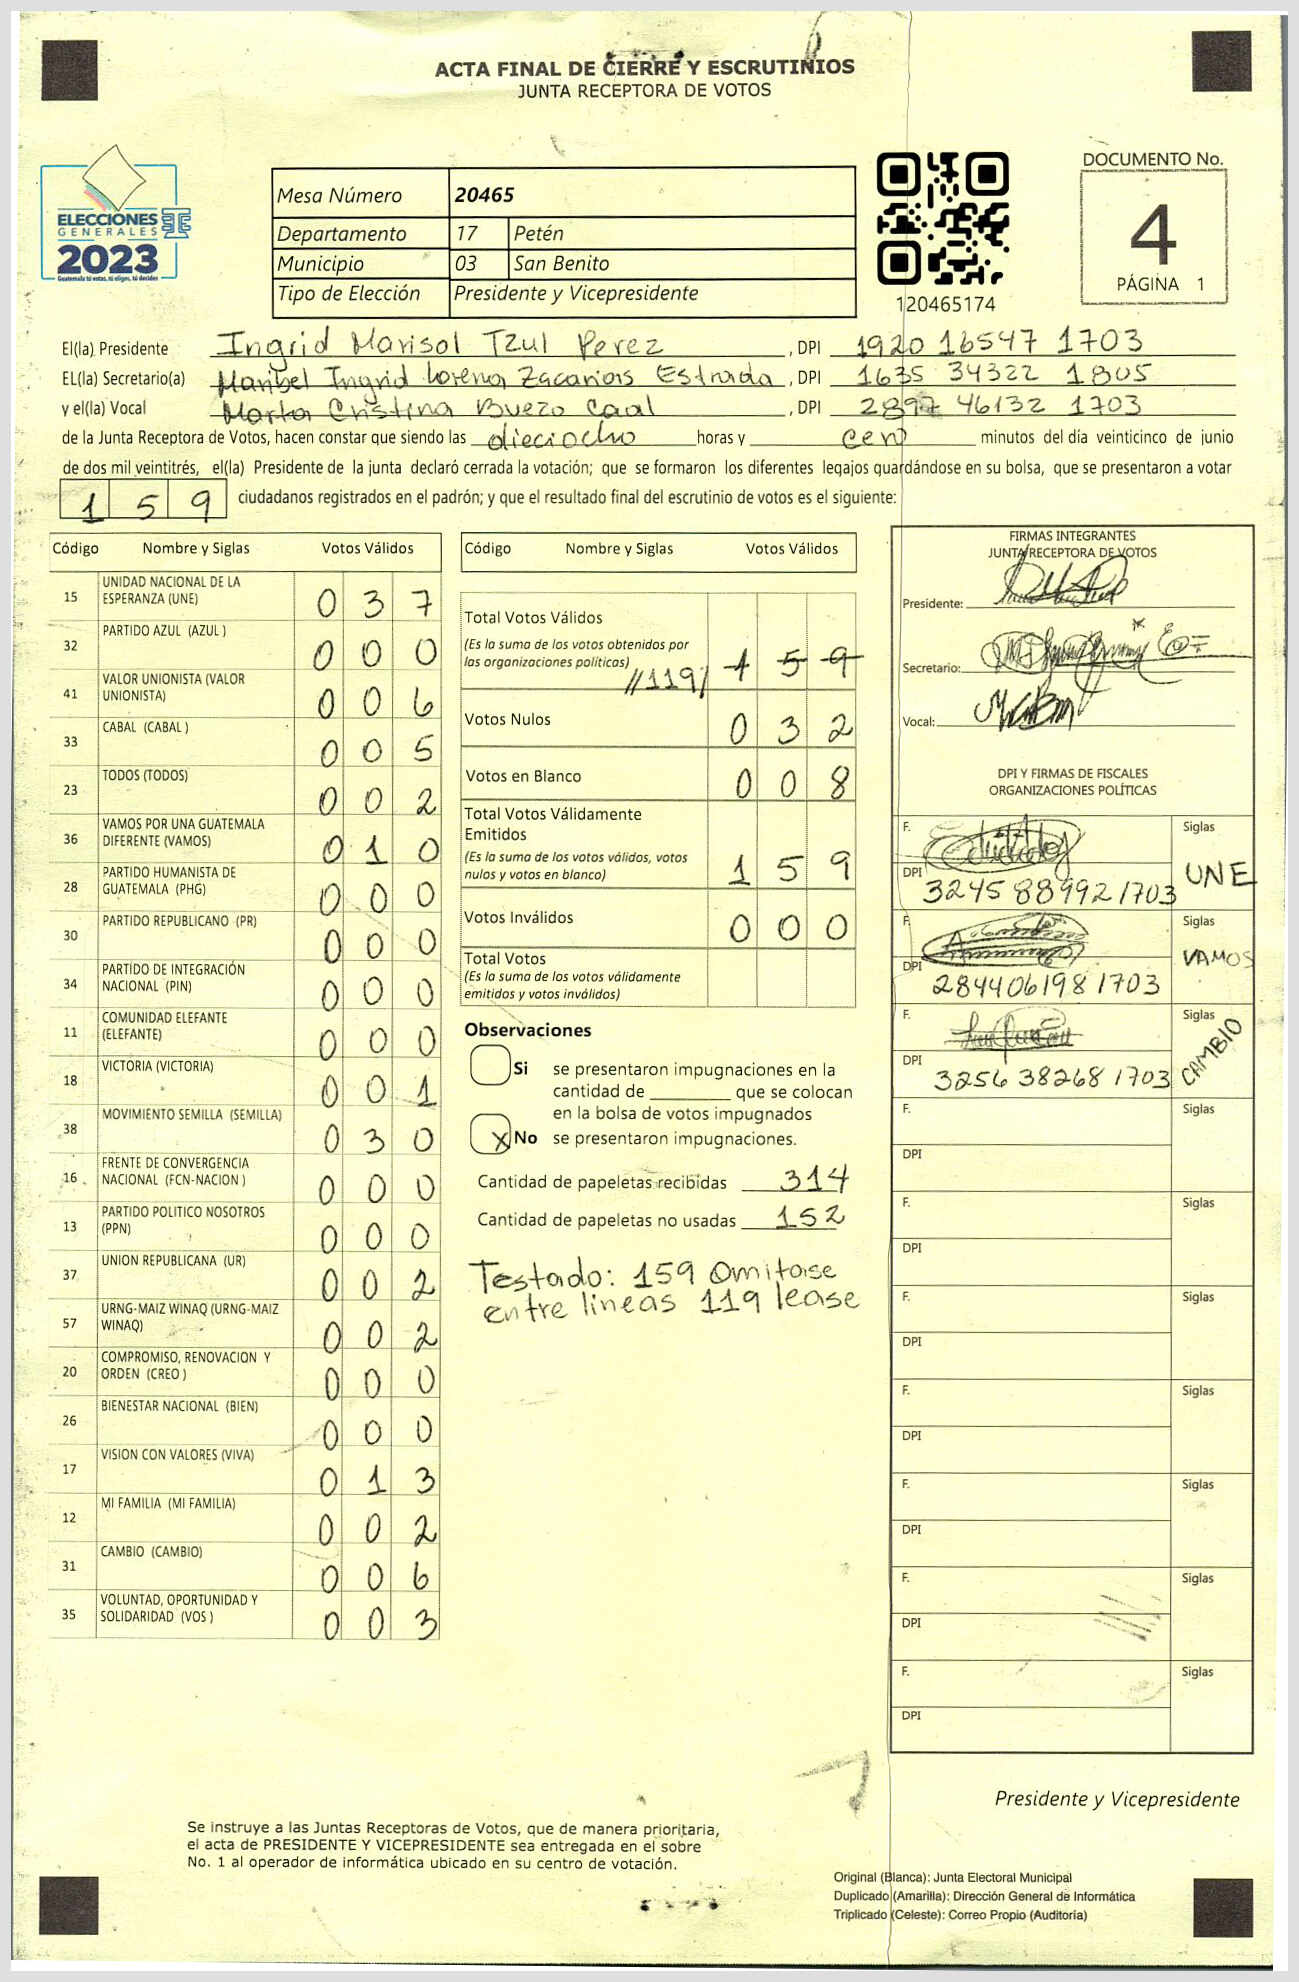 ACTA FINAL DE CIERRE Y ESCRUTINIOS
JUNTA RECEPTORA DE VOTOS
ELECCIONES
GENERALES
2023
Guatemala tú votas, tú eliges, tú decides
Mesa Número 20465
Departamento 17 Petén
Municipio 03 San Benito
Tipo de Elección Presidente y Vicepresidente
120465174
DOCUMENTO No.
4
PÁGINA 1
El(la) Presidente Ingrid Marisol Tzul Perez, DPI 1920 16547 1703
EL(la) Secretario(a) Maribel Ingrid Lorena Zacarias Estrada, DPI 1635 34322 1805
y el(la) Vocal Marta Cristina Buezo Caal, DPI 2897 46132 1703
de la Junta Receptora de Votos, hacen constar que siendo las dieciocho horas y cero minutos del día veinticinco de junio
de dos mil veintitrés, el(la) Presidente de la junta declaró cerrada la votación; que se formaron los diferentes legajos guardándose en su bolsa, que se presentaron a votar
1 5 9 ciudadanos registrados en el padrón; y que el resultado final del escrutinio de votos es el siguiente:
Código Nombre y Siglas Votos Válidos
15 UNIDAD NACIONAL DE LA ESPERANZA (UNE) 0 3 7
32 PARTIDO AZUL (AZUL ) 0 0 0
41 VALOR UNIONISTA (VALOR UNIONISTA) 0 0 6
33 CABAL (CABAL ) 0 0 5
23 TODOS (TODOS) 0 0 2
36 VAMOS POR UNA GUATEMALA DIFERENTE (VAMOS) 0 1 0
28 PARTIDO HUMANISTA DE GUATEMALA (PHG) 0 0 0
30 PARTIDO REPUBLICANO (PR) 0 0 0
34 PARTIDO DE INTEGRACIÓN NACIONAL (PIN) 0 0 0
11 COMUNIDAD ELEFANTE (ELEFANTE) 0 0 0
18 VICTORIA (VICTORIA) 0 0 1
38 MOVIMIENTO SEMILLA (SEMILLA) 0 3 0
16 FRENTE DE CONVERGENCIA NACIONAL (FCN-NACION ) 0 0 0
13 PARTIDO POLITICO NOSOTROS (PPN) 0 0 0
37 UNION REPUBLICANA (UR) 0 0 2
57 URNG-MAIZ WINAQ (URNG-MAIZ WINAQ) 0 0 2
20 COMPROMISO, RENOVACION Y ORDEN (CREO ) 0 0 0
26 BIENESTAR NACIONAL (BIEN) 0 0 0
17 VISION CON VALORES (VIVA) 0 1 3
12 MI FAMILIA (MI FAMILIA) 0 0 2
31 CAMBIO (CAMBIO) 0 0 6
35 VOLUNTAD, OPORTUNIDAD Y SOLIDARIDAD (VOS ) 0 0 3
Código Nombre y Siglas Votos Válidos
Total Votos Válidos
(Es la suma de los votos obtenidos por
las organizaciones políticas) //119/ 1 5 9
Votos Nulos 0 3 2
Votos en Blanco 0 0 8
Total Votos Válidamente
Emitidos
(Es la suma de los votos válidos, votos
nulos y votos en blanco) 1 5 9
Votos Inválidos 0 0 0
Total Votos
(Es la suma de los votos válidamente
emitidos y votos inválidos)
Observaciones
Si se presentaron impugnaciones en la
cantidad de ________ que se colocan
en la bolsa de votos impugnados
X No se presentaron impugnaciones.
Cantidad de papeletas recibidas 314
Cantidad de papeletas no usadas 152
Testado: 159 Omitase
entre lineas 119 lease
FIRMAS INTEGRANTES
JUNTA RECEPTORA DE VOTOS
Presidente:
Secretario:
Vocal:
DPI Y FIRMAS DE FISCALES
ORGANIZACIONES POLÍTICAS
F. Siglas
DPI 3245 88992 1703 UNE
F. Siglas
DPI 2844061981703 VAMOS
F. Siglas
DPI 3256 38268 1703 CAMBIO
F. Siglas
DPI
F. Siglas
DPI
F. Siglas
DPI
F. Siglas
DPI
F. Siglas
DPI
F. Siglas
DPI
F. Siglas
DPI
Presidente y Vicepresidente
Se instruye a las Juntas Receptoras de Votos, que de manera prioritaria,
el acta de PRESIDENTE Y VICEPRESIDENTE sea entregada en el sobre
No. 1 al operador de informática ubicado en su centro de votación.
Original (Blanca): Junta Electoral Municipal
Duplicado (Amarilla): Dirección General de Informática
Triplicado (Celeste): Correo Propio (Auditoría)